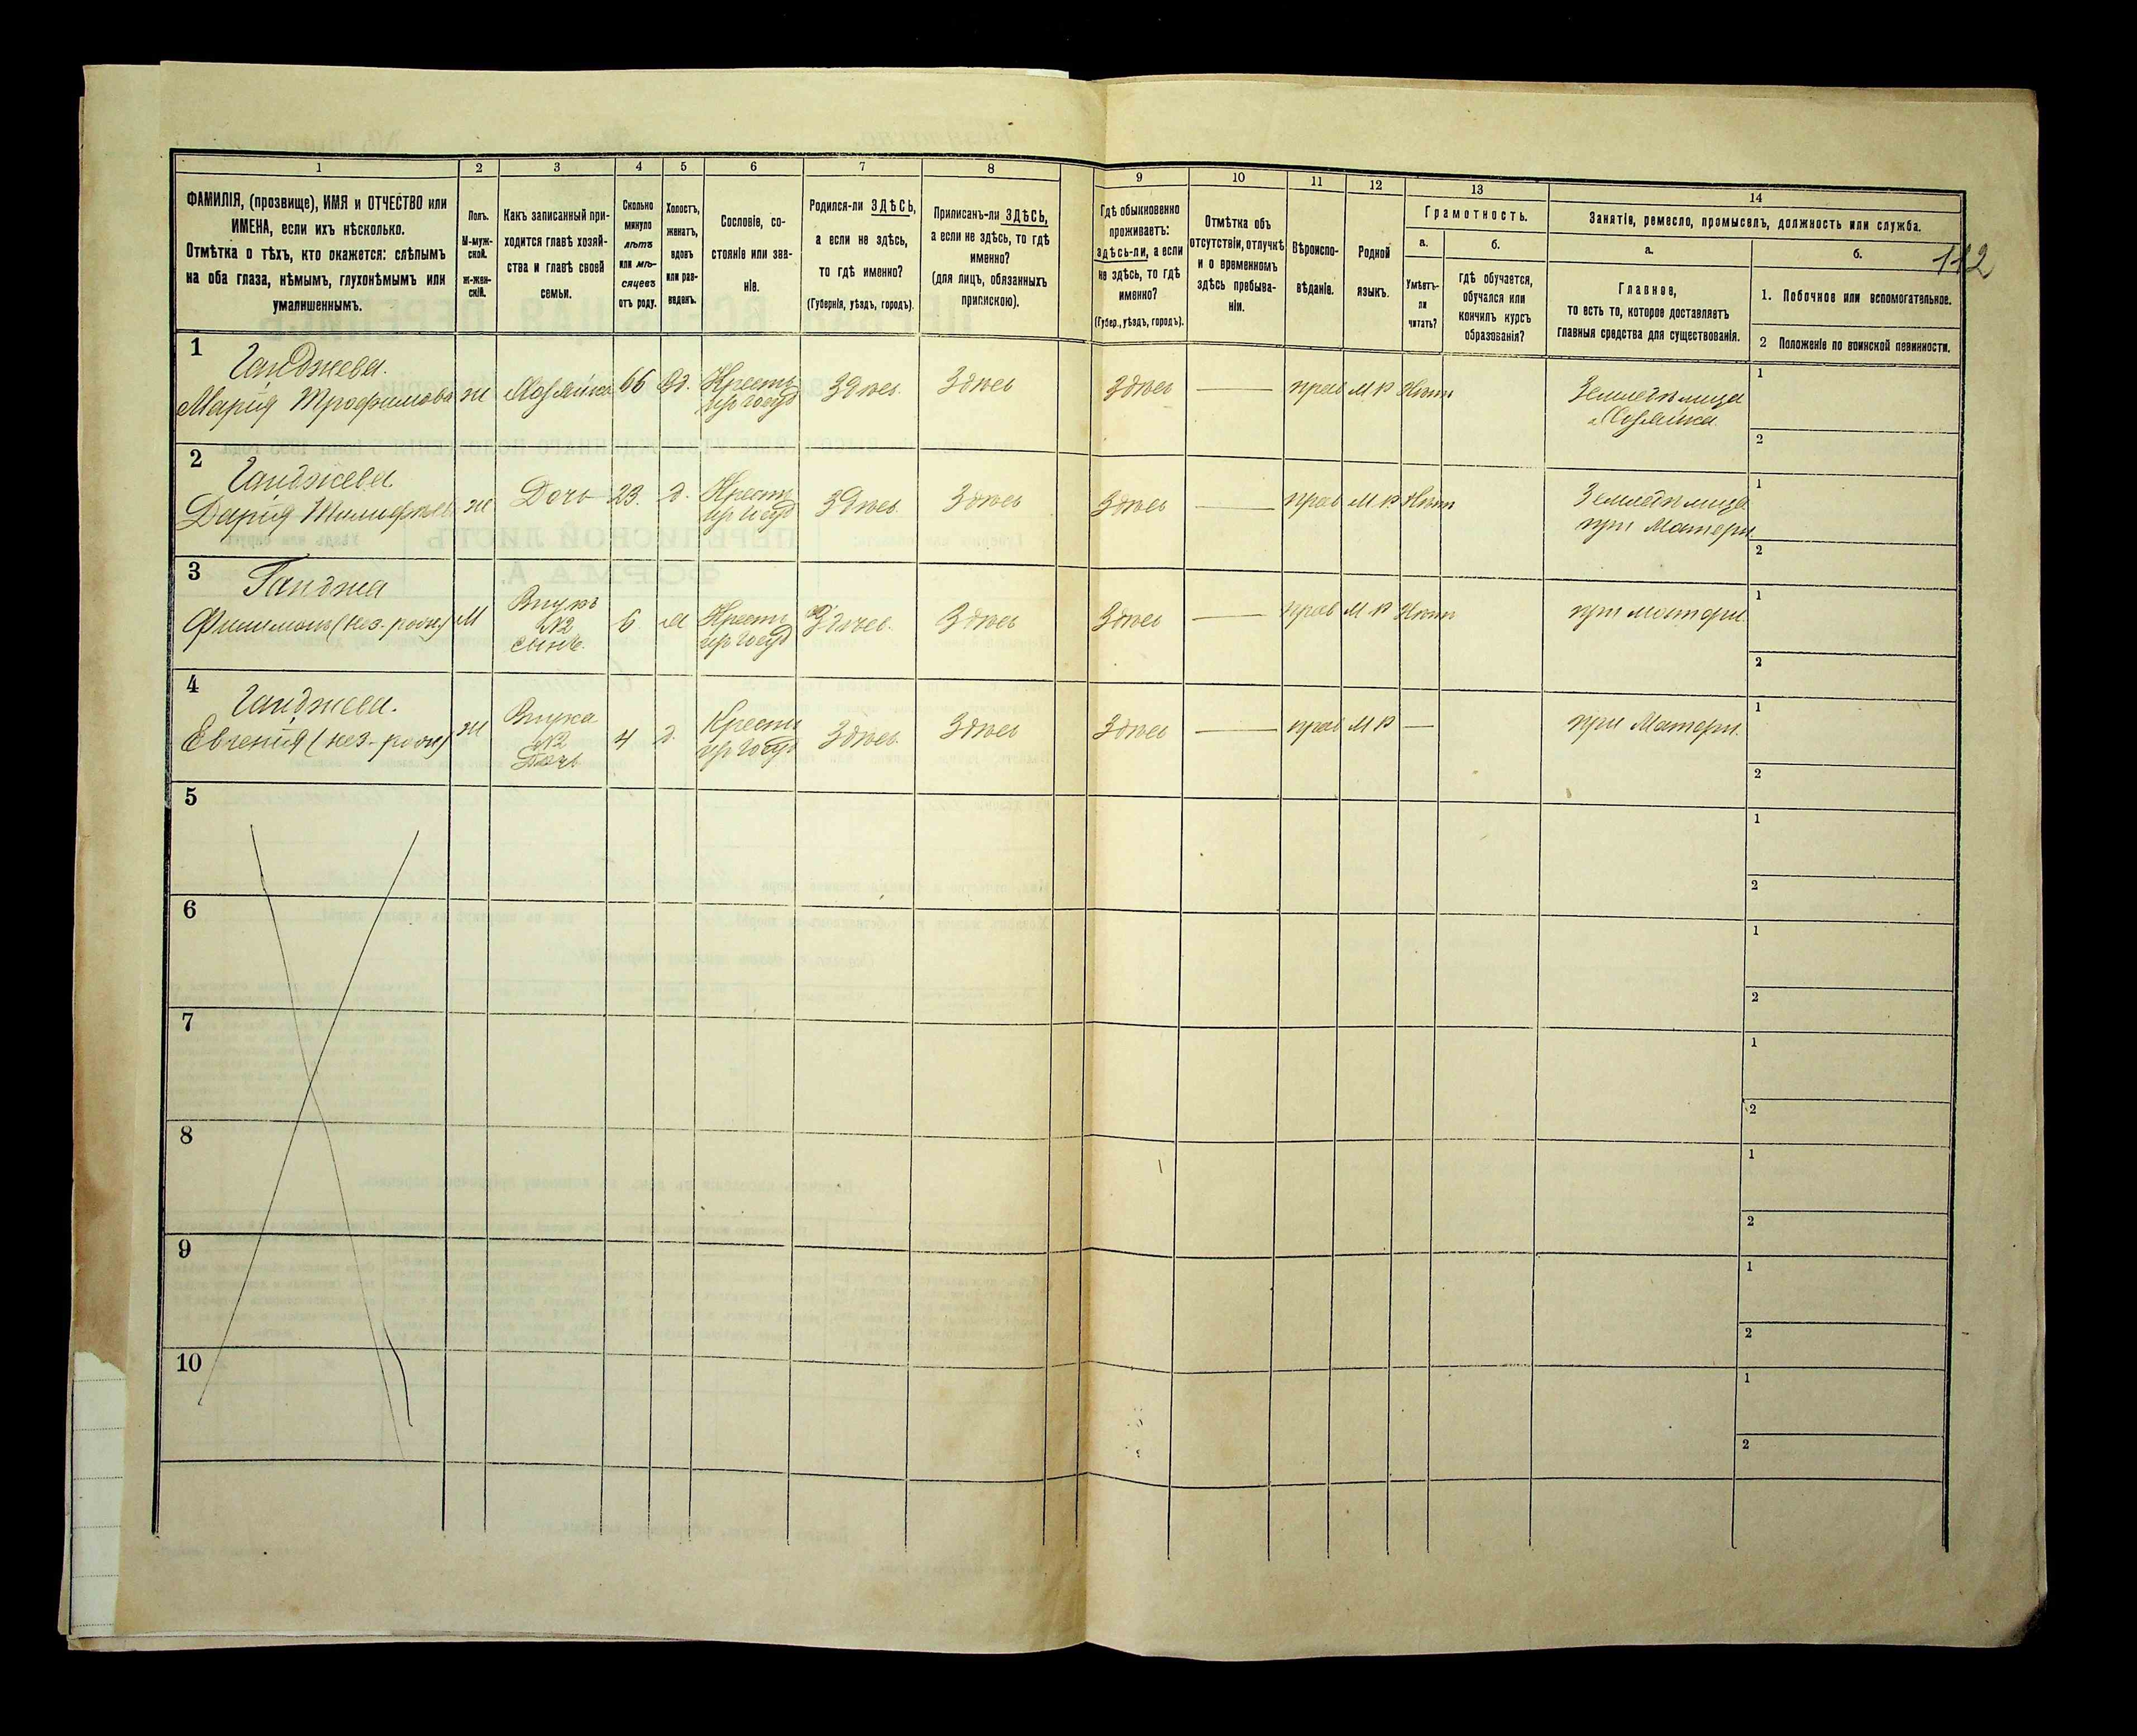 1 2 3 4 5 6 7 8 9 10 11 12 13 14
ФАМИЛІЯ, (прозвище), ИМЯ и ОТЧЕСТВО или
ИМЕНА, если ихъ нѣсколько.
Отмѣтка о тѣхъ, кто окажется: слѣпымъ
на оба глаза, нѣмымъ, глухонѣмымъ или
умалишеннымъ.
Полъ.
М-муж-
ской.
Ж-жен-
скій.
Какъ записанный при-
ходится главѣ хозяй-
ства и главѣ своей
семьи.
Сколько
минуло
лѣтъ
или мѣ-
сяцевъ
отъ роду.
Холостъ,
женатъ,
вдовъ
или раз-
веденъ.
Сословіе, со-
стояніе или зва-
ніе.
Родился-ли ЗДѢСЬ,
а если не здѣсь,
то гдѣ именно?
(Губернія, уѣздъ, городъ).
Приписанъ-ли ЗДѢСЬ,
а если не здѣсь, то гдѣ
именно?
(для лицъ, обязанныхъ
припискою).
Гдѣ обыкновенно
проживаетъ:
здѣсь-ли, а если
не здѣсь, то гдѣ
именно?
(Губер., уѣздъ, городъ).
Отмѣтка объ
отсутствіи, отлучкѣ
и о временномъ
здѣсь пребыва-
ніи.
Вѣроиспо-
вѣданіе.
Родной
языкъ.
Грамотность.
а.
Умѣетъ-
ли
читать?
б.
гдѣ обучается,
обучался или
кончилъ курсъ
образованія?
Занятіе, ремесло, промыселъ, должность или служба.
а.
Главное,
то есть то, которое доставляетъ
главныя средства для существованія.
б.
1. Побочное или вспомогательное.
2 Положеніе по воинской повинности.
112
1
Ганджева.
Марія Трофимова ж Хозяйка 66 Вд. Крестн Здѣсь Здѣсь Здѣсь — прав МР Нѣтъ
Земледѣлица
Хозяйка.
1
2
2
Ганджева
Дарія ж Дочь 23. д. Крестн Здѣсь Здѣсь Здѣсь — прав МР Нѣтъ
Земледѣлица
при Матери.
1
2
3
Ганджа
Филимонъ (нез. рожд) М
Внукъ
№2
сынъ.
6 Крестн Здѣсь Здѣсь Здѣсь — прав МР Нѣтъ
при матери.
1
2
4
Ганджева.
Евгенія (нез-рожд) ж
Внука
№2
Дочь
4 д. Крестн Здѣсь Здѣсь Здѣсь — прав МР —
при Матери.
1
2
5
1
2
6
1
2
7
1
2
8
1
2
9
1
2
10
1
2